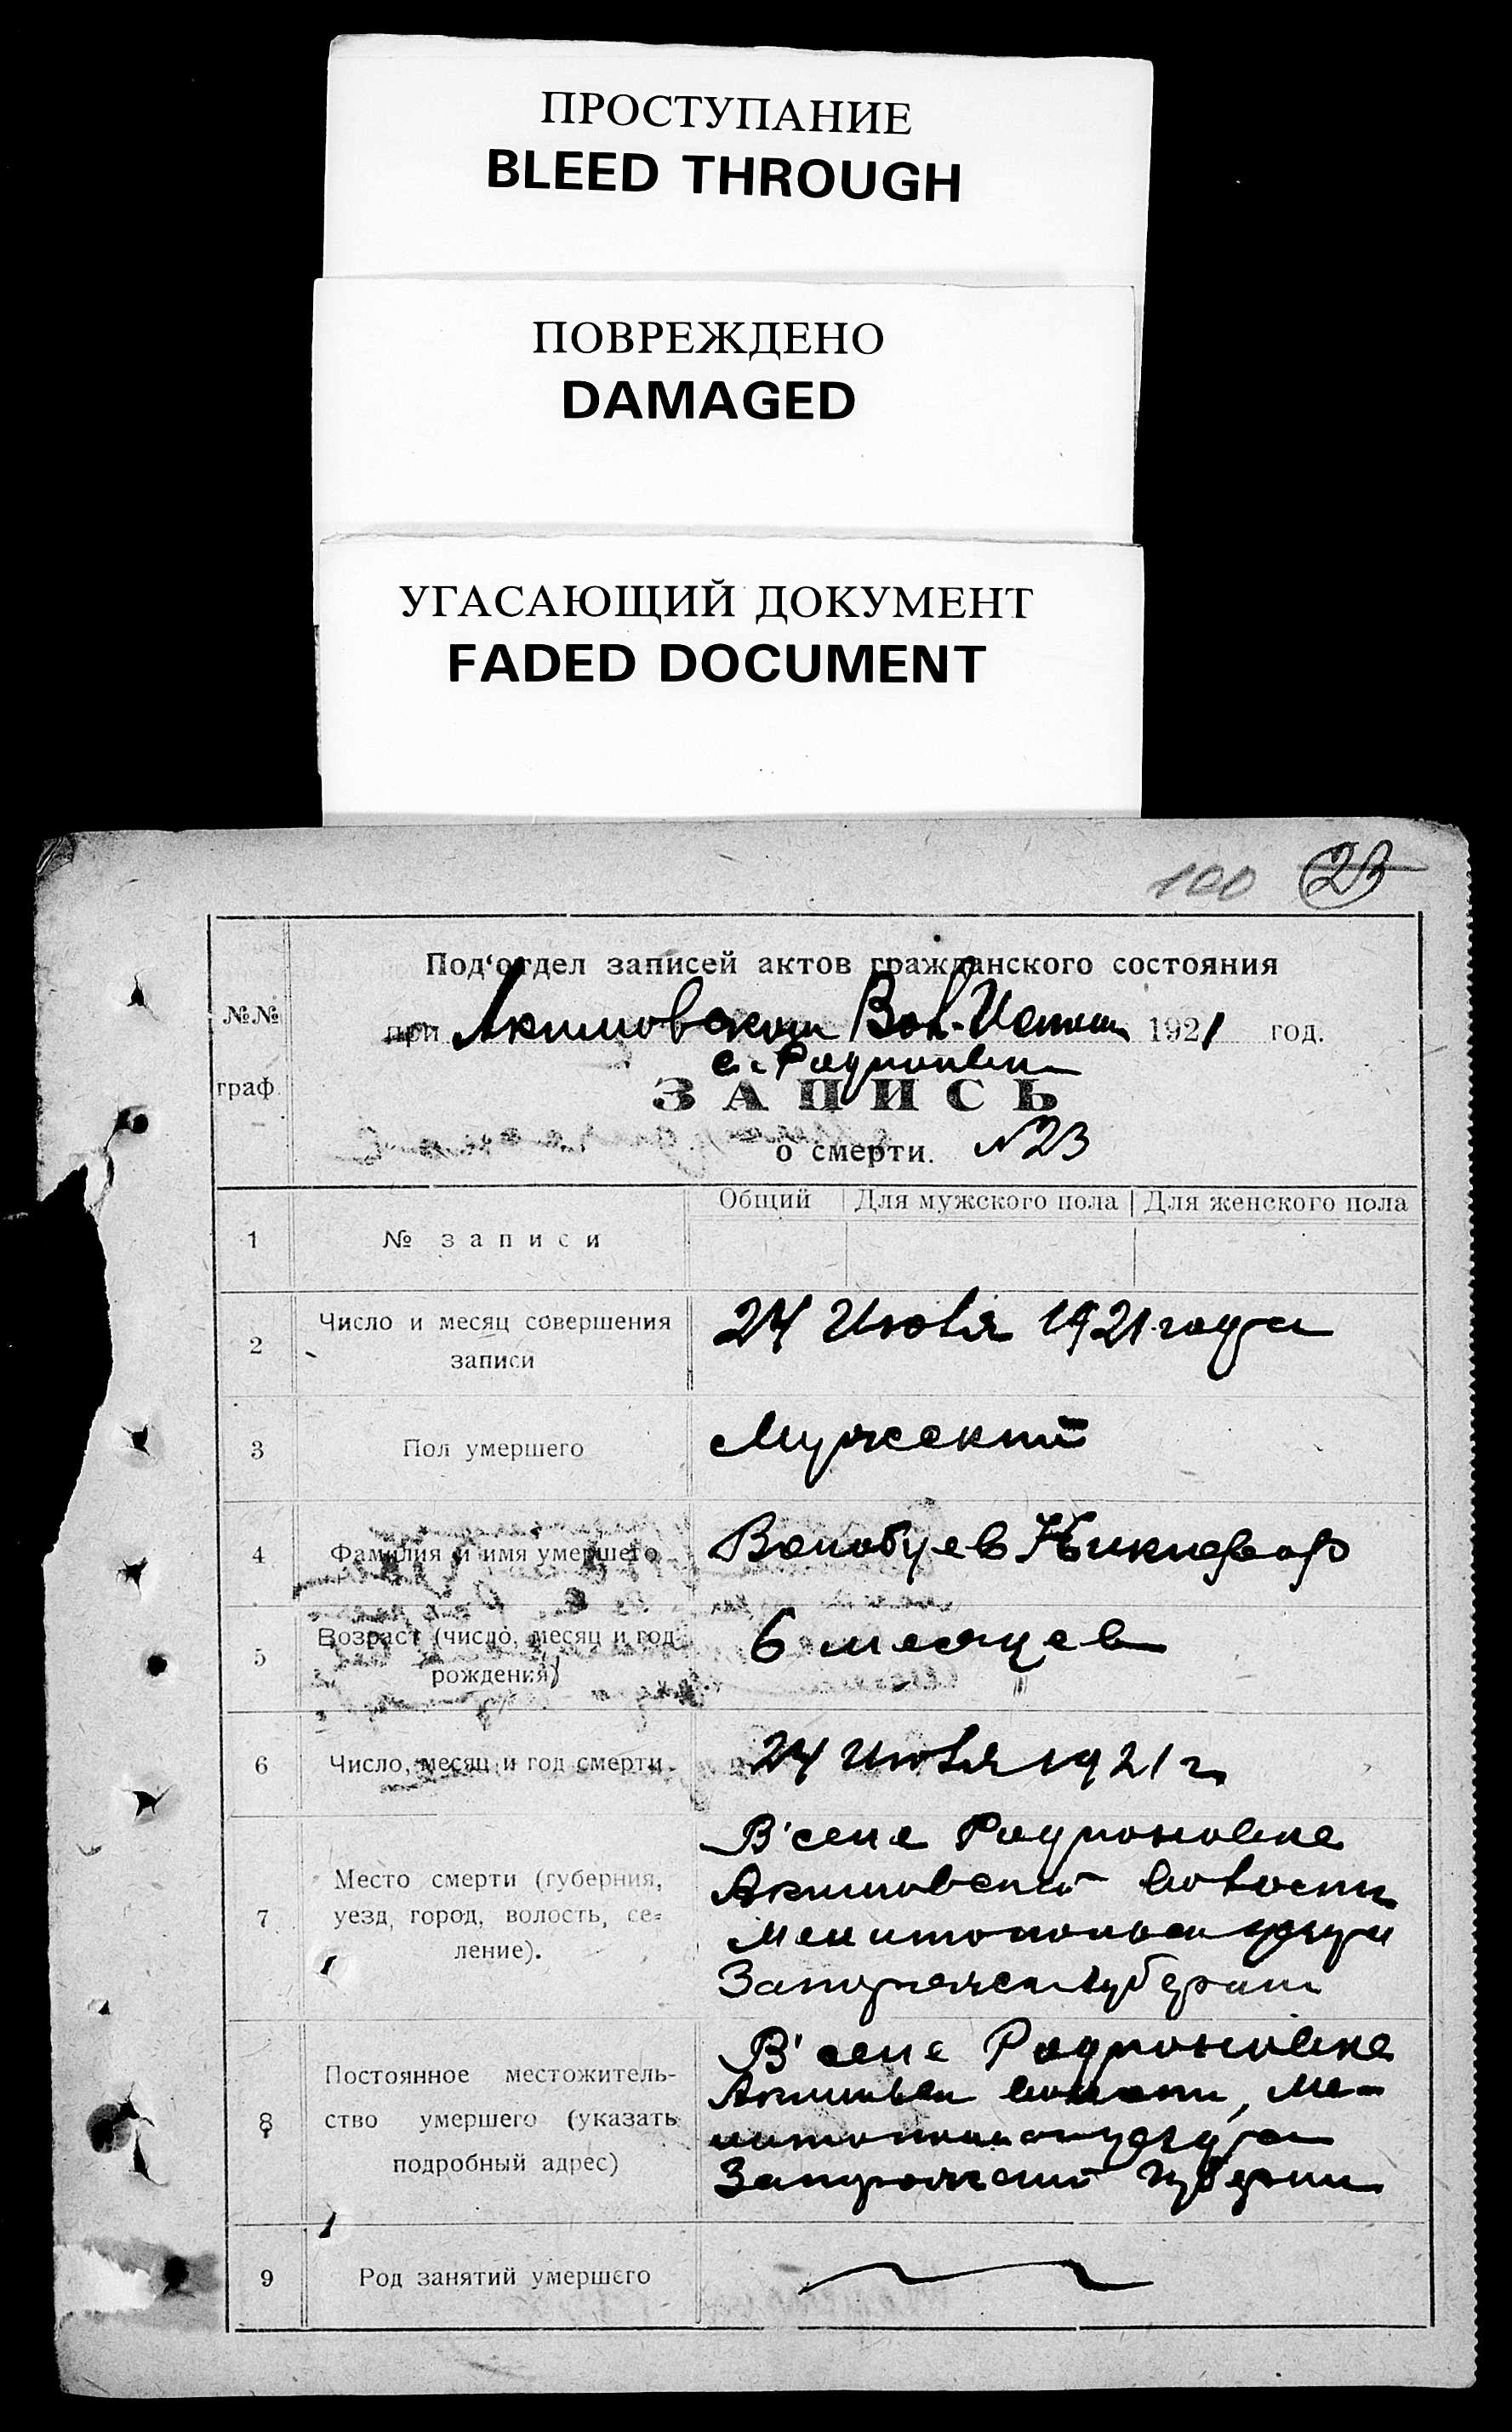 ПРОСТУПАНИЕ
BLEED THROUGH
ПОВРЕЖДЕНО
DAMAGED
УГАСАЮЩИЙ ДОКУМЕНТ
FADED DOCUMENT
100 23
Под‘отдел записей актов гражданского состояния
№№ при Акимовском Вол. 1921 год.
с. Родионовки
граф. ЗАПИСЬ
о смерти. N 23
Общий Для мужского пола Для женского пола
1 № записи
2 Число и месяц совершения 24 Июля 1921 года
записи
3 Пол умершего Мужский
4 Фамилия и имя умершего Никифор
5 Возраст (число, месяц и год 6 месяцев
рождения)
6 Число, месяц и год смерти 24 Июля 1921 г.
В'селе Родионовке
7 Место смерти (губерния, Акимовской волости
уезд, город, волость, се= Мелитопольск уезда
ление). Запорожской губернии
В' селе Родионовке
8 Постоянное местожитель- волости, Ме-
ство умершего (указать литопольск уезда
подробный адрес) Запорожской губернии
9 Род занятий умершего